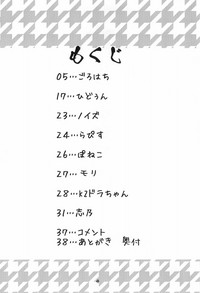 もくじ
05…ごろはち
17…ひどぅん
23…ノイズ
24…らぴす
26…ぽねこ
27…モリ
28…K2ドラちゃん
31…志乃
37…コメント
38…あとがき 奥付